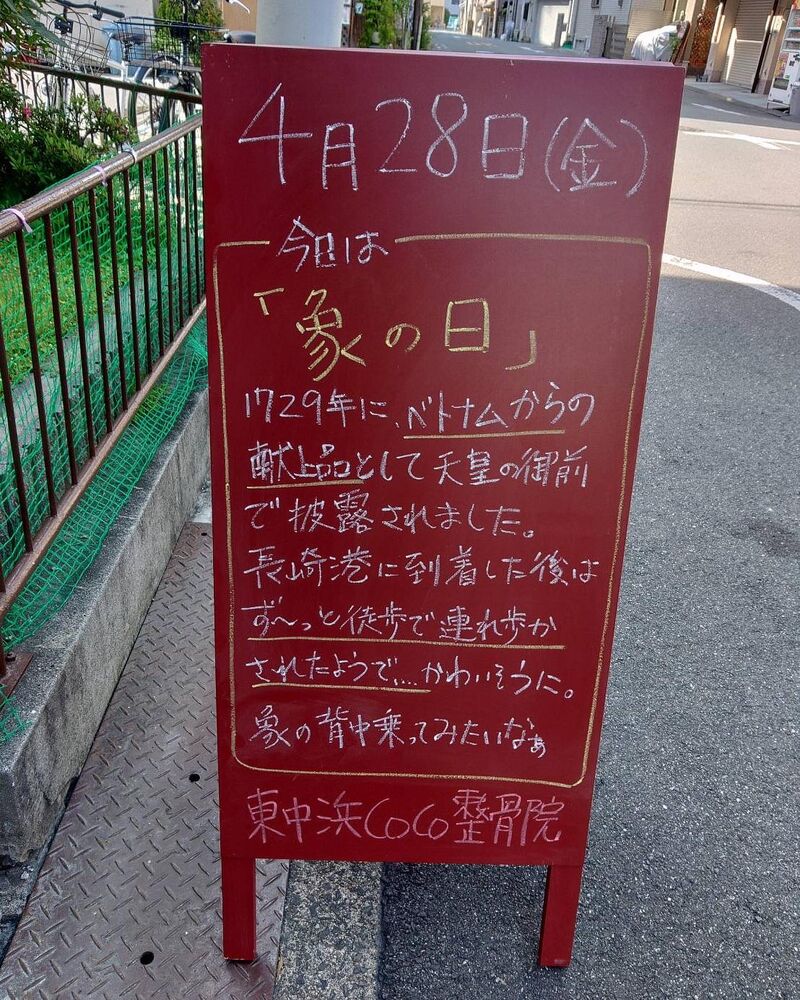 4月28日(金)
今日は
「象の日」
1729年に、ベトナムからの
献上品として天皇の御前
で披露されました。
長崎港に到着した後は
ず〜っと徒歩で連れ歩か
されたようで....かわいそうに。
象の背中乗ってみたいなぁ
東中浜CoCo整骨院